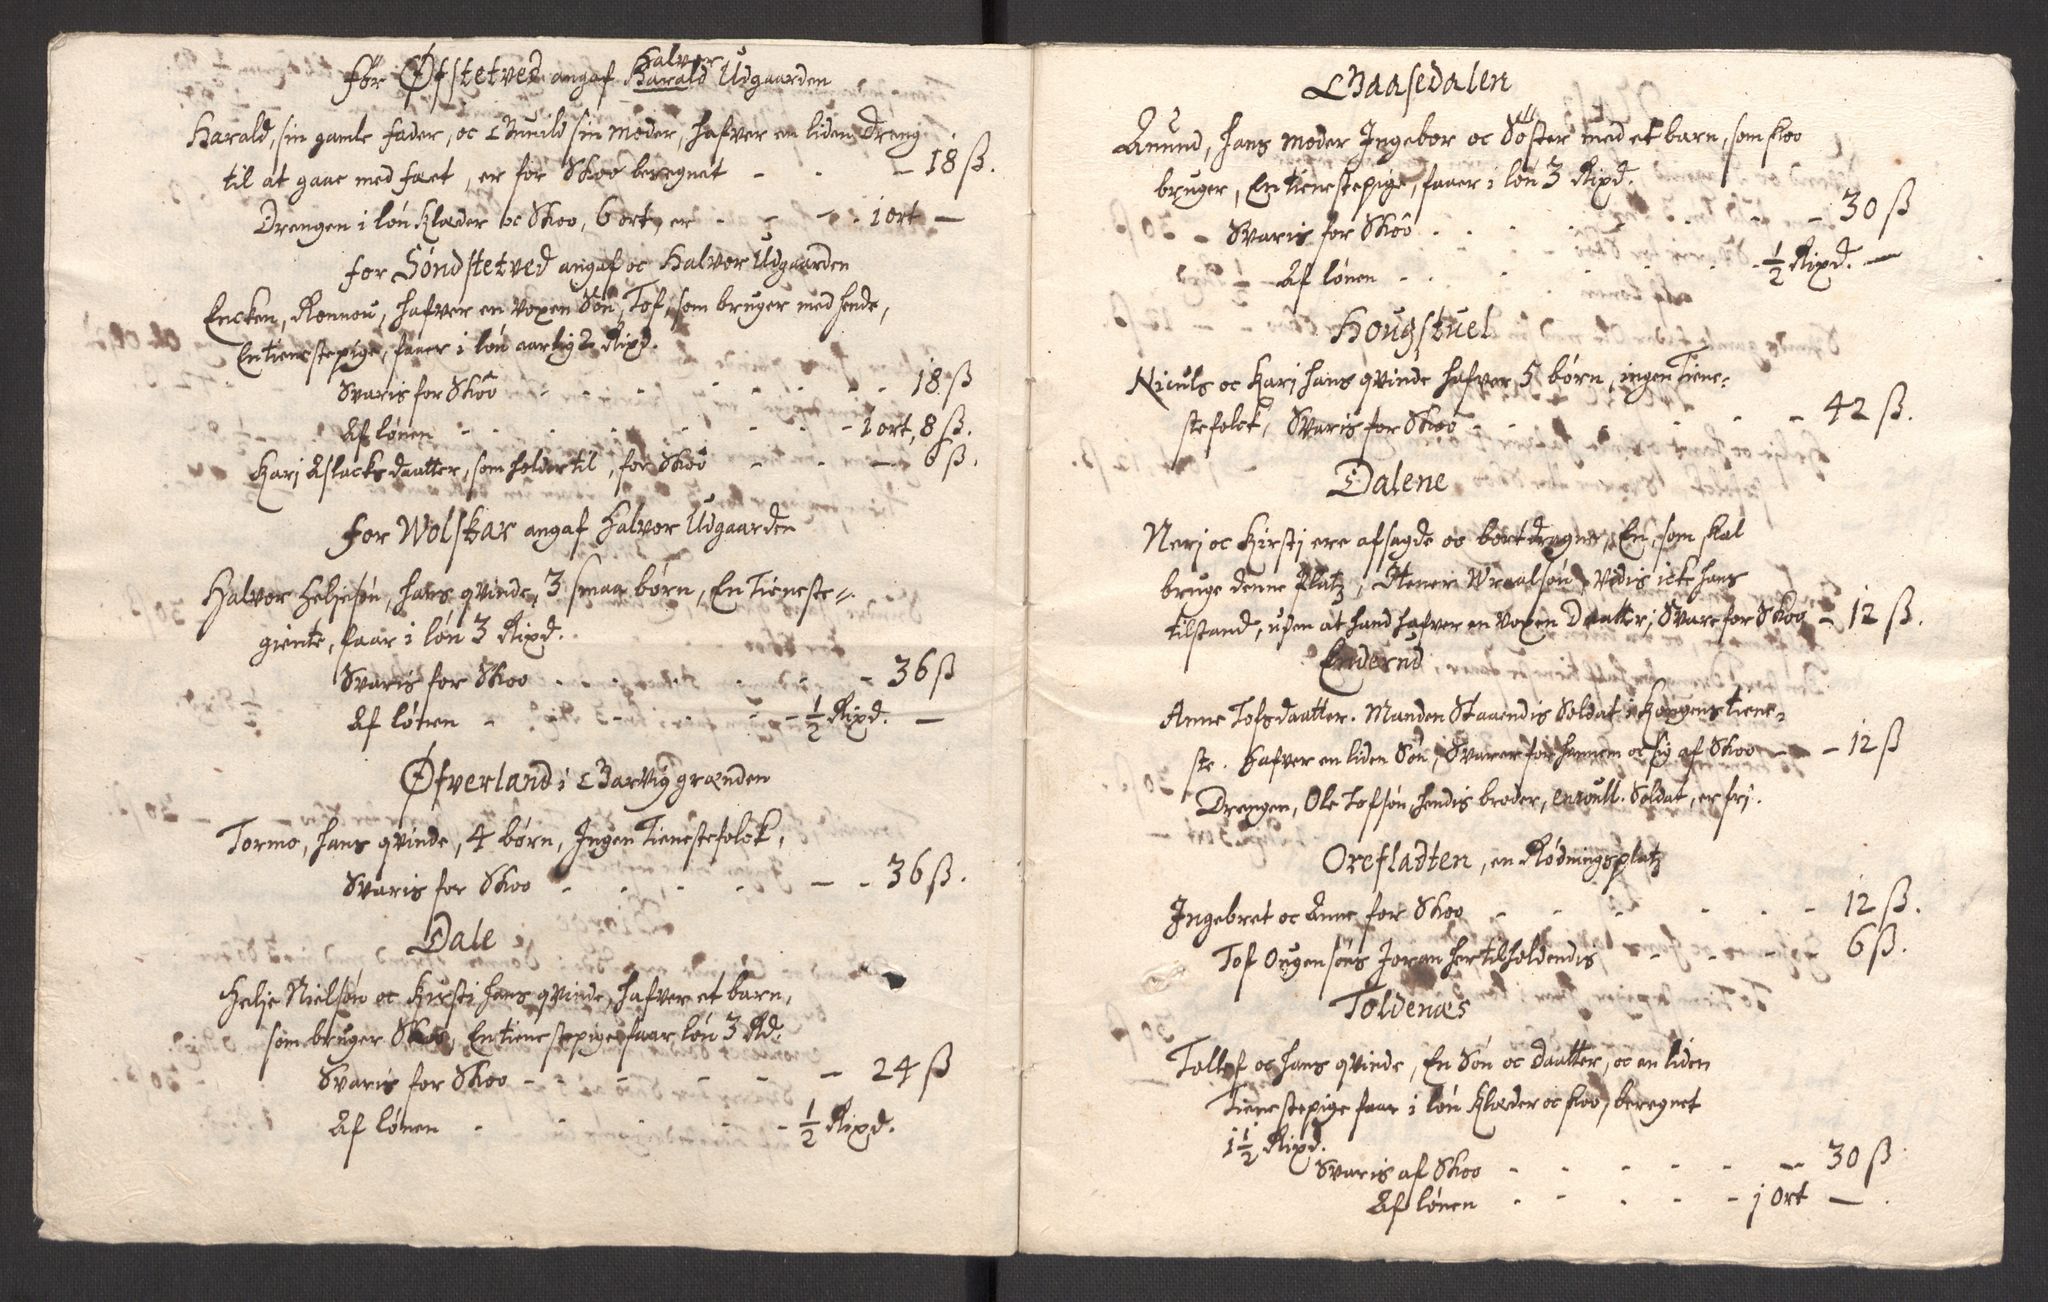 Halvor
for Øfstetved angaf Harald Udgaarden
Harald, sin gamle fader, oc Gunild sin moder, hafver en liden dreng
til at gaae med fæet, er for Skoo beregnet - - - 18 ß.
Drengen i løn Klæder oc Skoo, 6 ort, er - - - 1 ort -
for Søndstetved angaf oc Halvor Udgaarden
Encken, Rønnou, hafver en voxen Søn, Tof, som bruger med hende,
En tienestepige, faaer i løn aarlig 2 Rixd.
Svaris for Skoo - - - - - - 18 ß
Af lønen - - - - - - 1 ort, 8 ß.
Kari Aslacksdaatter, som holder til, for Skoo - - - 6 ß.
for Wolskar angaf Halvor Udgaarden
Halvor Heljesøn, hans qvinde, 3 smaa børn, En Tieneste-
giente, faar i løn 3 Rixd.
Svaris for Skoo - - - - - - 36 ß
Af lønen - - - - - ½ Rixd. -
Øfverland i Barvig grænden
Tormo, hans qvinde, 4 børn, Ingen Tienestefolck,
Svaris for Skoo - - - - - - 36 ß.
Dale
Helje Nielsøn oc Kirsti hans qvinde, hafver et barn,
som bruger Skoo, En tienestepige faar løn 3 Rd.
Svaris for Skoo - - - - - - 24 ß
Af lønen - - - - - ½ Rixd.
Baasedalen
Anund, hans moder Ingebor oc Søster med et barn, som skoo
bruger, En tienestepige, faaer i løn 3 Rixd.
Svaris for Skoo - - - - - - 30 ß
Af lønen - - - - - - ½ Rixd. -
Hougstuel
Niculs oc Kari hans qvinde hafver 5 børn, ingen Tiene-
stefolck, Svaris for Skoo - - - - - 42 ß.
Dalene
Neri oc Kirsti ere afsagde oc bortdragne, En, som skal
bruge denne Platz, Stener Wraalsøn, vidis icke hans
tilstand, uden at hand hafver en voxen Daatter, Svare for Skoo - 12 ß.
Enderud
Anne Tofsdaatter. Manden Staaendis Soldat i Kongens tiene-
ste. Hafver en liden Søn, Svarer for hannem oc sig af Skoo - - 12 ß
Drengen, Ole Tofsøn, hendis broder, enroull. Soldat, er fri.
Orefladten, en Rødningsplatz
Ingebret oc Anne for Skoo - - - - - - 12 ß.
Tof Ougensøns Joran her tilholdendis - - - - 6 ß.
Toldenæs
Tollef oc hans qvinde, En Søn oc daatter, oc en liden
Tienestepige faar i løn klæder oc skoo, beregnet
1½ Rixd.
Svaris af Skoo - - - - - - 30 ß
Af lønen - - - - - 1 Ort - .